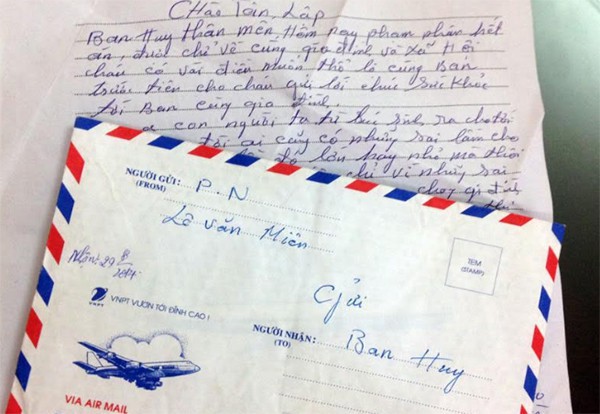 Chào Tân Lập
Ban Huy thân mến, Hôm nay phạm nhân hết
án, được chở về cùng gia đình và xã Hội
cháu có vài điều muốn thổ lộ cùng Ban
trước tiên cho cháu gửi lời chúc sức khỏe
tới Ban cùng gia đình.
con người ta từ lúc sinh ra cho tới
ai cũng có những sai lầm cho
lớn hay nhỏ mà thôi
chỉ vì những sai
gia đình
NGƯỜI GỬI: P.N
(FROM)
Lê Văn Miên
TEM
(STAMP)
Nhận: 29/8/2014
VNPT
VNPT VƯƠN TỚI ĐỈNH CAO !
Gửi
NGƯỜI NHẬN: Ban Huy
(TO)
VIA AIR MAIL